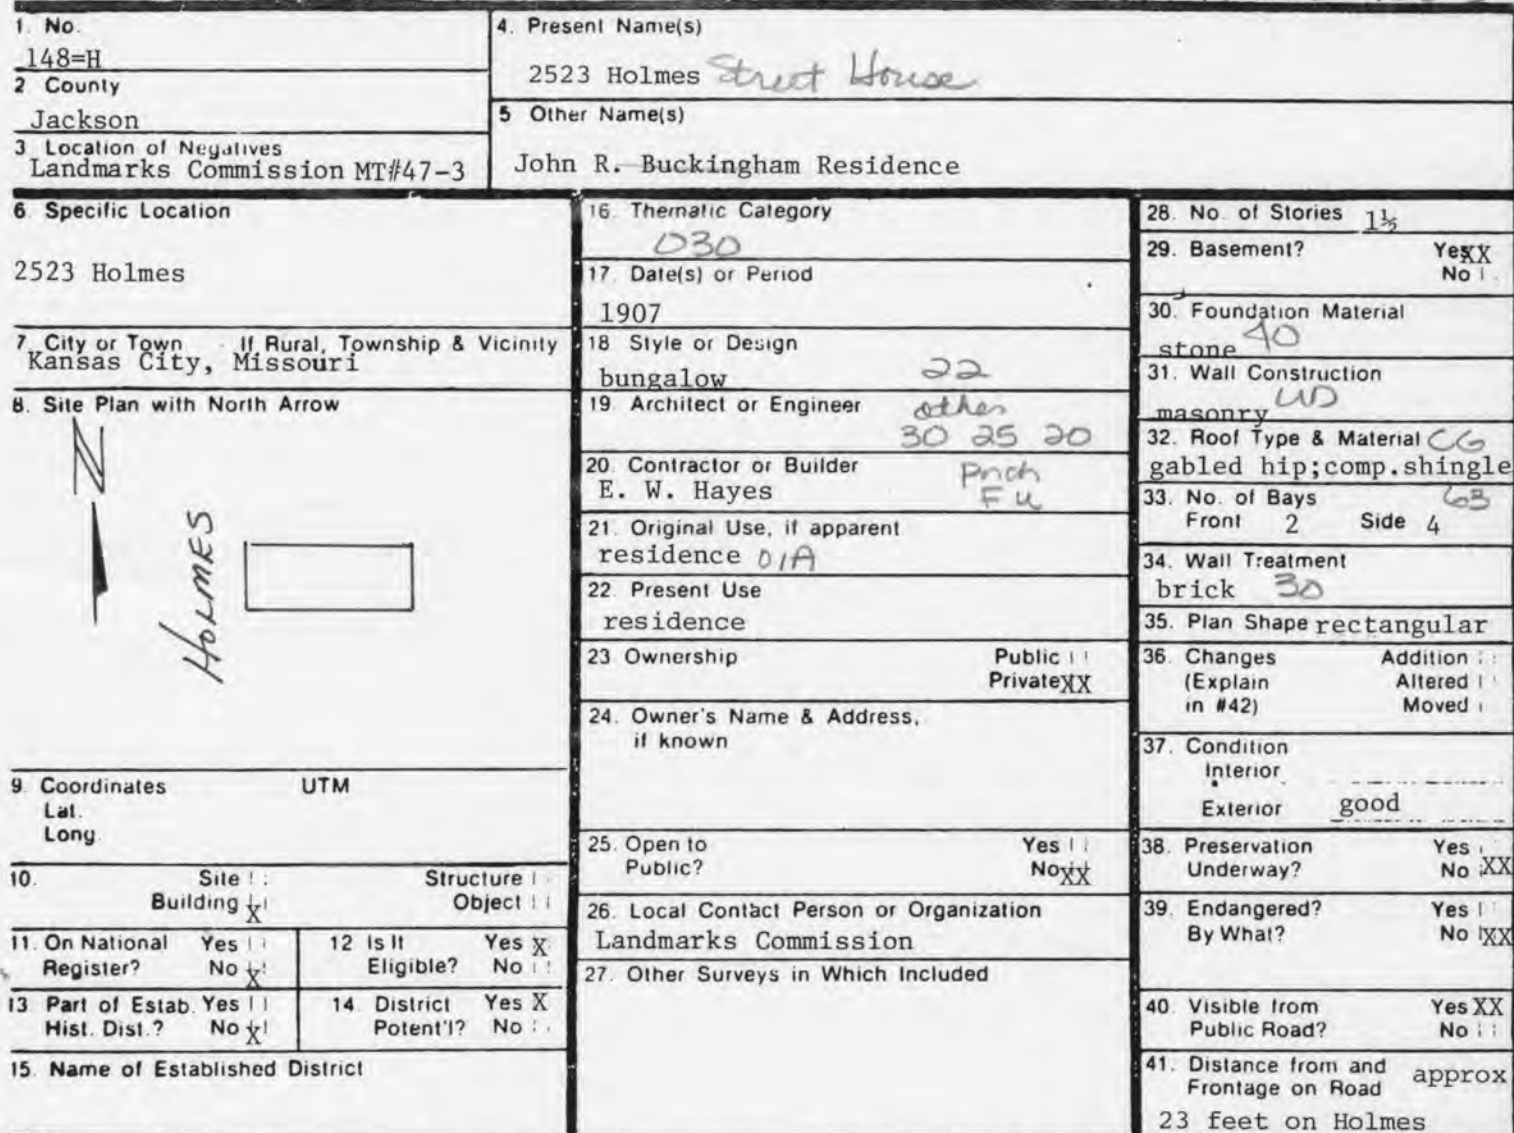 1. No.
148=H
2 County
Jackson
3 Location of Negatives
Landmarks Commission MT#47-3
4. Present Name(s)
2523 Holmes Street House
5 Other Name(s)
John R. Buckingham Residence
6. Specific Location
2523 Holmes
7. City or Town If Rural, Township & Vicinity
Kansas City, Missouri
8. Site Plan with North Arrow
N
HOLMES
9. Coordinates UTM
Lat.
Long.
10. Site Structure
Building X Object
11. On National Yes
Register? No X
12 Is It Yes X
Eligible? No
13 Part of Estab. Yes
Hist. Dist.? No X
14. District Yes X
Potent'l? No
15. Name of Established District
16. Thematic Category
030
17. Date(s) or Period
1907
18 Style or Design
bungalow 22
19. Architect or Engineer other
30 25 20
20. Contractor or Builder
E. W. Hayes
21. Original Use, if apparent
residence 01A
22. Present Use
residence
23 Ownership Public
Private XX
24. Owner's Name & Address,
if known
25. Open to Yes
Public? No XX
26. Local Contact Person or Organization
Landmarks Commission
27. Other Surveys in Which Included
28. No. of Stories 1½
29. Basement? Yes XX
No
30. Foundation Material
stone 40
31. Wall Construction
masonry WD
32. Roof Type & Material CG
gabled hip;comp.shingle
33. No. of Bays 63
Front 2 Side 4
34. Wall Treatment
brick 30
35. Plan Shape rectangular
36. Changes Addition
(Explain Altered
in #42) Moved
37. Condition
Interior
Exterior good
38. Preservation Yes
Underway? No XX
39. Endangered? Yes
By What? No XX
40. Visible from Yes XX
Public Road? No
41. Distance from and approx
Frontage on Road
23 feet on Holmes